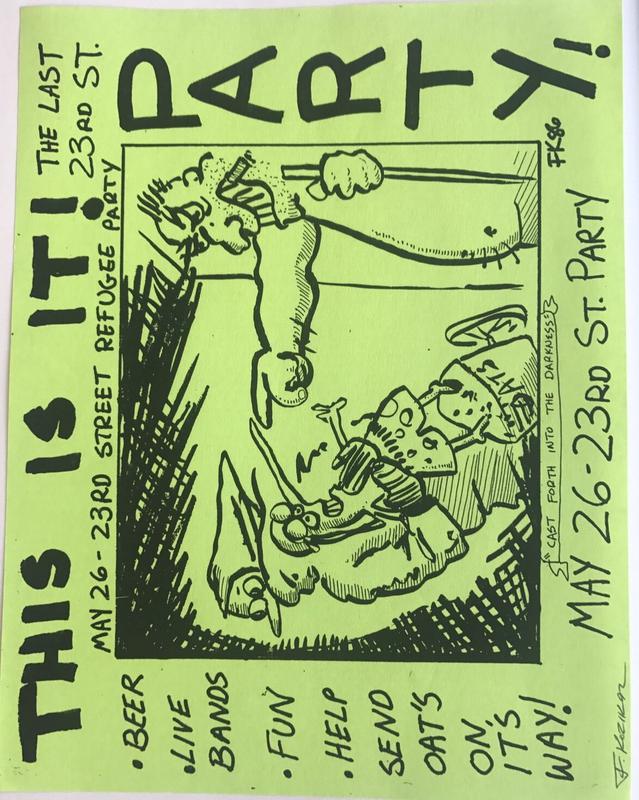 THIS IS IT!
THE LAST
23RD ST.
PARTY!
MAY 26 - 23RD STREET REFUGEE PARTY
• BEER
• LIVE
BANDS
• FUN
• HELP
SEND
OAT'S
ON,
IT'S
WAY!
FK86
"CAST FORTH INTO THE DARKNESS"
MAY 26-23RD ST. PARTY